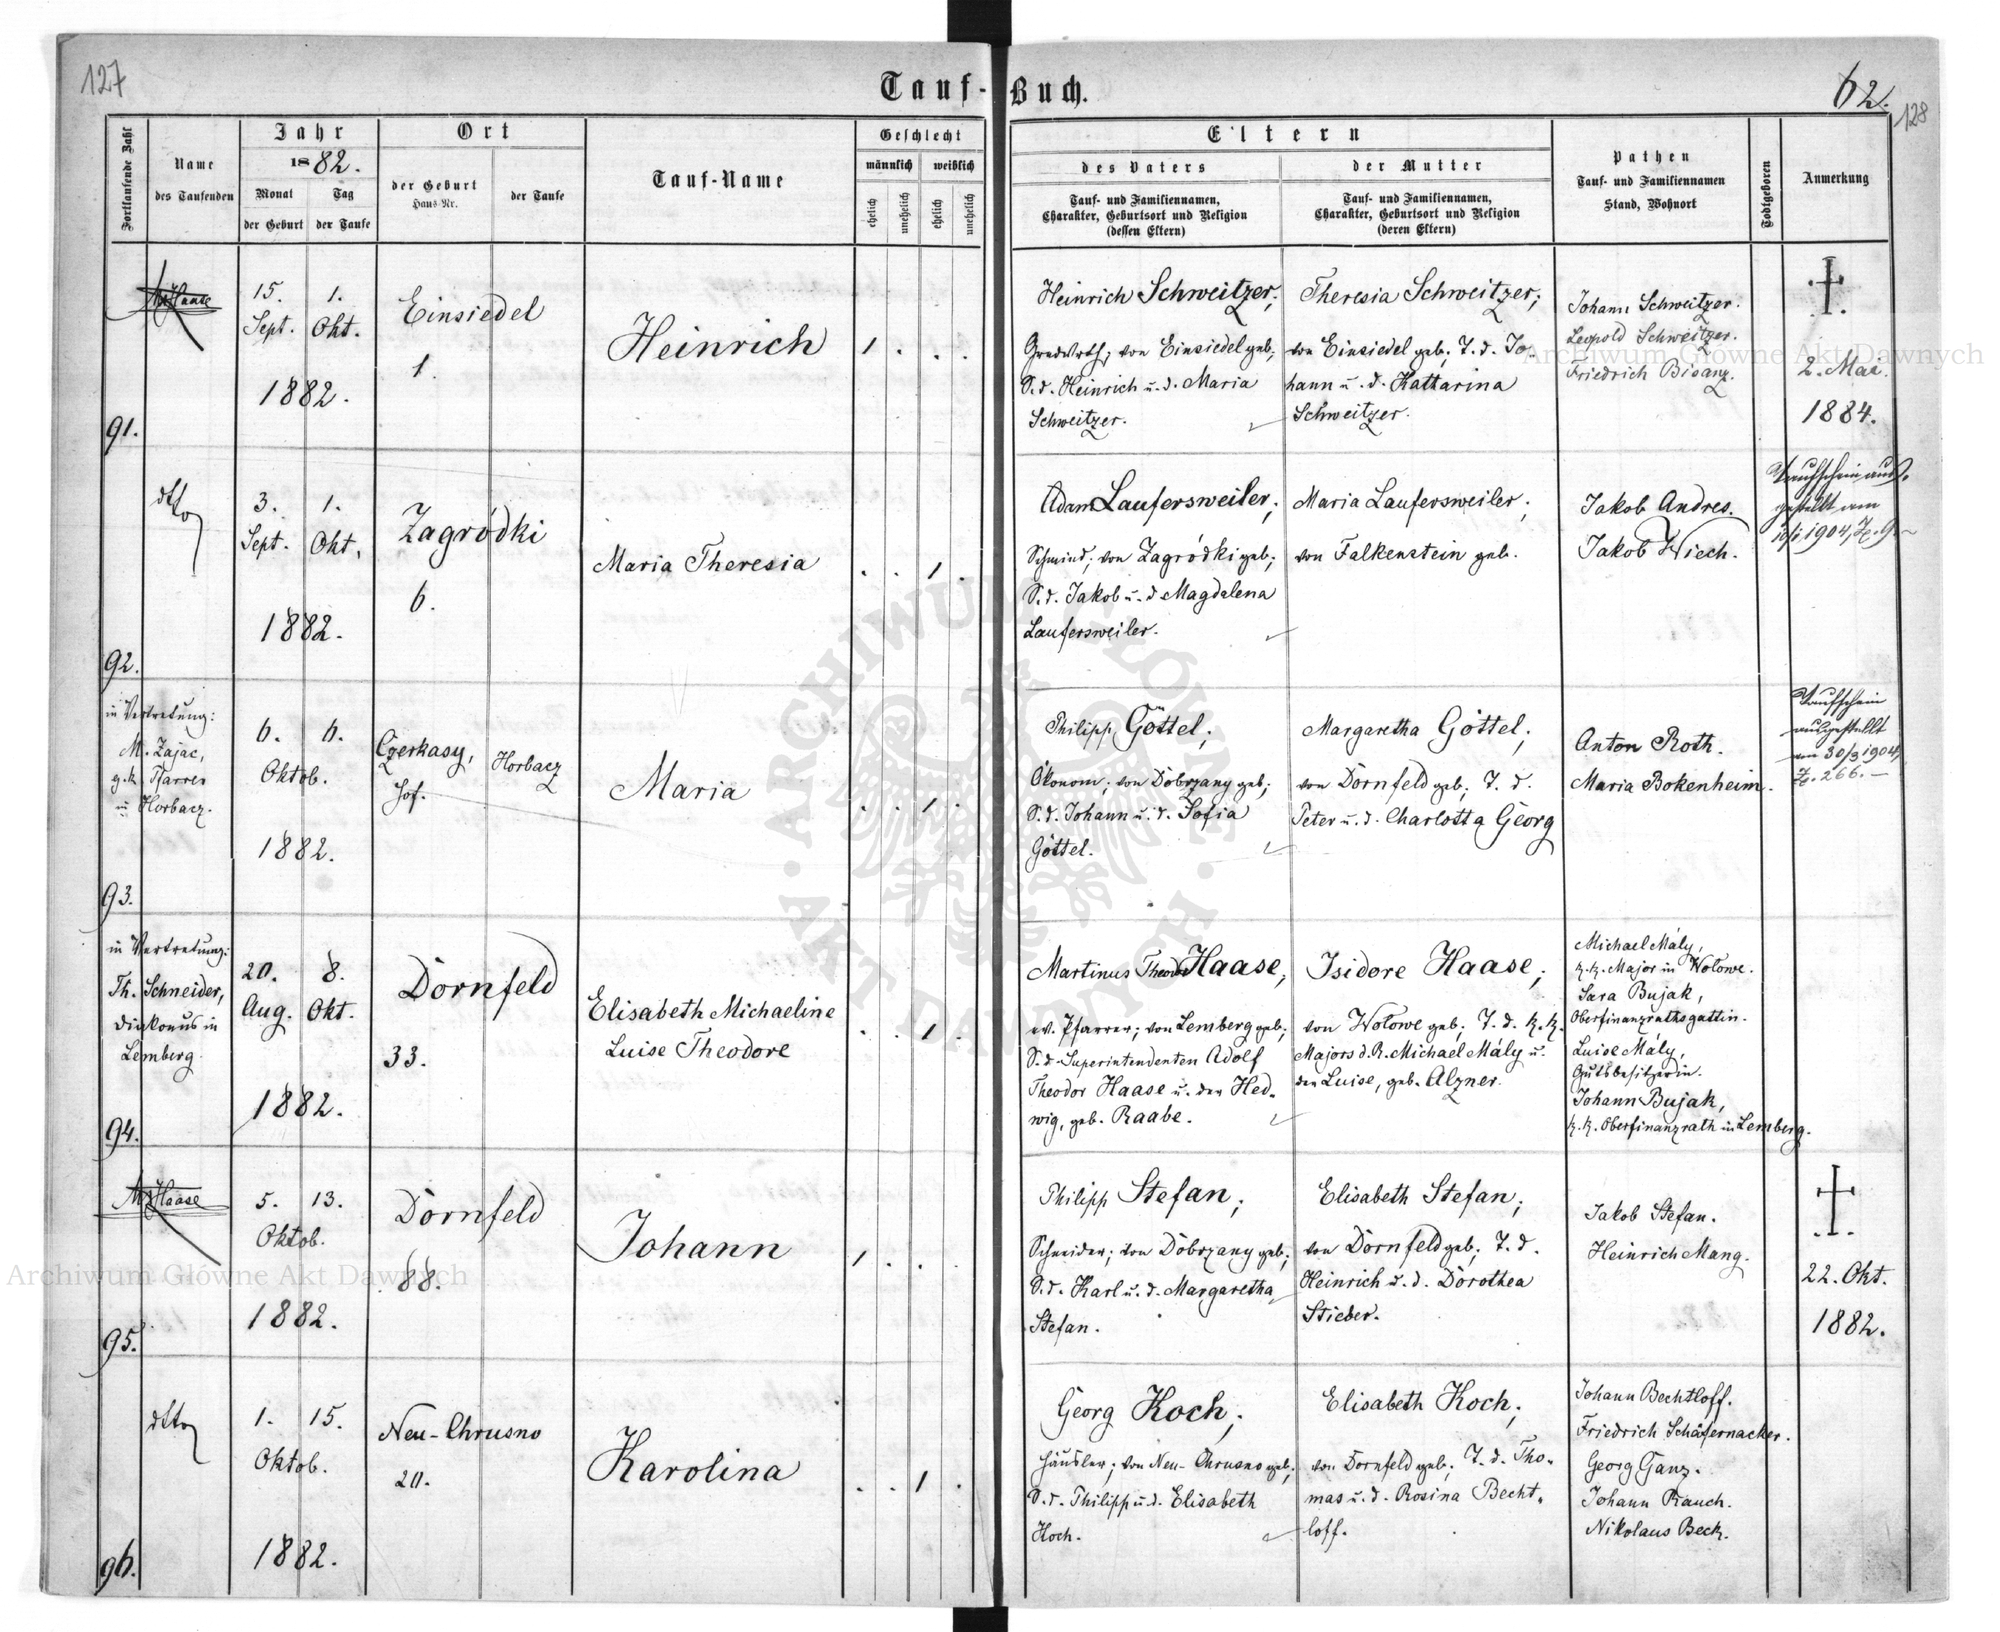 127
Tauf-Buch.
62.
128
Fortlaufende Zahl
Name
des Taufenden
Jahr
1882.
Monat
der Geburt
Tag
der Taufe
Ort
der Geburt
Haus-Nr.
der Taufe
Tauf-Name
Geschlecht
männlich
weiblich
ehelich
unehelich
ehelich
unehelich
Eltern
des Vaters
Tauf- und Familiennamen,
Charakter, Geburtsort und Religion
(dessen Eltern)
der Mutter
Tauf- und Familiennamen,
Charakter, Geburtsort und Religion
(deren Eltern)
Pathen
Tauf- und Familiennamen
Stand, Wohnort
Todtgeboren
Anmerkung
91.
Haase
15. 1.
Sept. Okt.
1882.
Einsiedel
1.
Heinrich
1 . . .
Heinrich Schweitzer;
von Einsiedel geb;
S. d. Heinrich u. d. Maria
Schweitzer.
Theresia Schweitzer;
von Einsiedel geb; T. d. Jo-
hann u. d. Katharina
Schweitzer.
Johann Schweitzer.
Leopold Schweitzer.
Friedrich Bisanz.
2. Mai.
1884.
92.
dtto
3. 1.
Sept. Okt.
1882.
Zagródki
6.
Maria Theresia
. . 1 .
Adam Laufersweiler;
Schmied; von Zagródki geb;
S. d. Jakob u. d. Magdalena
Laufersweiler.
Maria Laufersweiler;
von Falkenstein geb.
Jakob Andres.
Jakob Wiech.
Taufschein aus-
gestellt am
1904, Z. 9.
93.
in Vertretung:
M. Zajac,
g. k. Pfarrer
in Horbacz.
6. 6.
Oktob.
1882.
Czerkasy,
Hof.
Horbacz
Maria
. . 1 .
Philipp Göttel;
Ökonom; von Dobrzany geb;
S. d. Johann u. d. Sofia
Göttel.
Margaretha Göttel;
von Dornfeld geb; T. d.
Peter u. d. Charlotta Georg
Anton Roth.
Maria Bokenheim.
Taufschein
ausgestellt
am 30/3 1904,
Z. 266. —
94.
in Vertretung:
Th. Schneider,
Diakonus in
Lemberg.
20. 8.
Aug. Okt.
1882.
Dornfeld
33.
Elisabeth Michaeline
Luise Theodore
. . 1 .
Martinus Theodor Haase;
ev. Pfarrer; von Lemberg geb;
S. d. Superintendenten Adolf
Theodor Haase u. der Hed-
wig, geb. Raabe.
Isidore Haase;
von Wolowe geb; T. d. k. k.
Majors d. R. Michael Mály u.
der Luise, geb. Alzner.
Michael Mály,
k. k. Major in Wolowe.
Sara Bujak,
Oberfinanzrathsgattin.
Luise Mály,
Gutsbesitzerin.
Johann Bujak,
k. k. Oberfinanzrath in Lemberg.
95.
Haase
5. 13.
Oktob.
1882.
Dornfeld
88.
Johann
1 . . .
Philipp Stefan;
Schneider; von Dobrzany geb;
S. d. Karl u. d. Margaretha
Stefan.
Elisabeth Stefan;
von Dornfeld geb; T. d.
Heinrich u. d. Dorothea
Stieber.
Jakob Stefan.
Heinrich Mang.
22. Okt.
1882.
96.
dtto
1. 15.
Oktob.
1882.
Neu-Chrusno
20.
Karolina
. . 1 .
Georg Koch;
Häusler; von Neu-Chrusno geb;
S. d. Philipp u. d. Elisabeth
Koch.
Elisabeth Koch;
von Dornfeld geb; T. d. Tho-
mas u. d. Rosina Becht-
loff.
Johann Bechtloff.
Friedrich Schäfernacker.
Georg Ganz.
Johann Rauch.
Nikolaus Beck.
Archiwum Główne Akt Dawnych
Archiwum Główne Akt Dawnych
ARCHIWUM GŁÓWNE AKT DAWNYCH